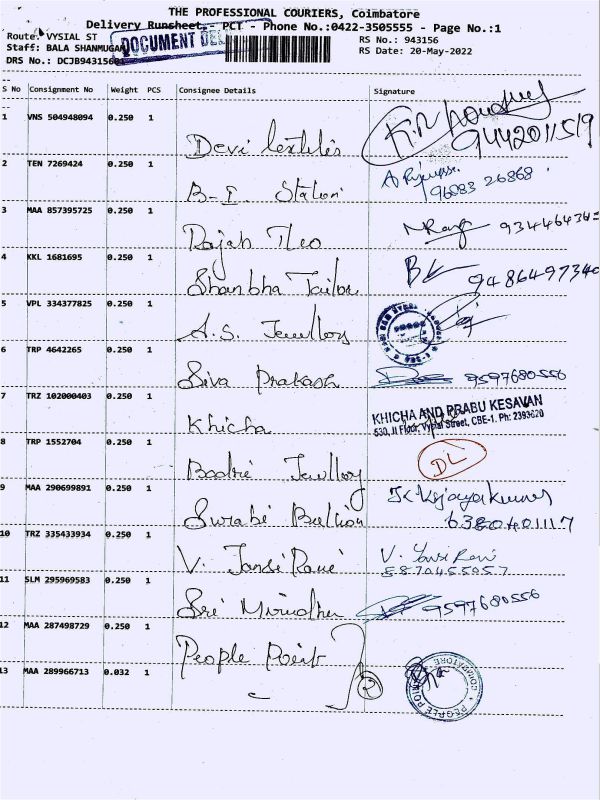 THE PROFESSIONAL COURIERS, Coimbatore
Delivery Runsheet - PCT - Phone No.:0422-3505555 - Page No.:1
Route: VYSIAL ST
RS No.: 943156
Staff: BALA SHANMUGAM
RS Date: 20-May-2022
DRS No.: DCJB943156
DOCUMENT DEL
S No Consignment No Weight PCS Consignee Details Signature
1 VNS 504948094 0.250 1 Devi textiles 9442011519
2 TEN 7269424 0.250 1 B-I. Station 96883 26868
3 MAA 857395725 0.250 1 Rajah Theo
4 KKL 1681695 0.250 1 Shanbha Tailor
5 VPL 334377825 0.250 1 A.S. Jewellory
6 TRP 4642265 0.250 1 Siva Prakash 9597680556
7 TRZ 102000403 0.250 1 Khicha KHICHA AND PRABU KESAVAN
530, II Floor, Vysial Street, CBE-1. Ph: 2393620
8 TRP 1552704 0.250 1 Badri Jewllory DL
9 MAA 290699891 0.250 1 Surabi Bullion 6380401117
10 TRZ 335433934 0.250 1 V. Jansi Rani V. Jansi Rani
5870455957
11 SLM 295969583 0.250 1 Sri 9597680556
12 MAA 287498729 0.250 1 People Point
13 MAA 289966713 0.032 1 2 PEOPLE POINT COIMBATORE